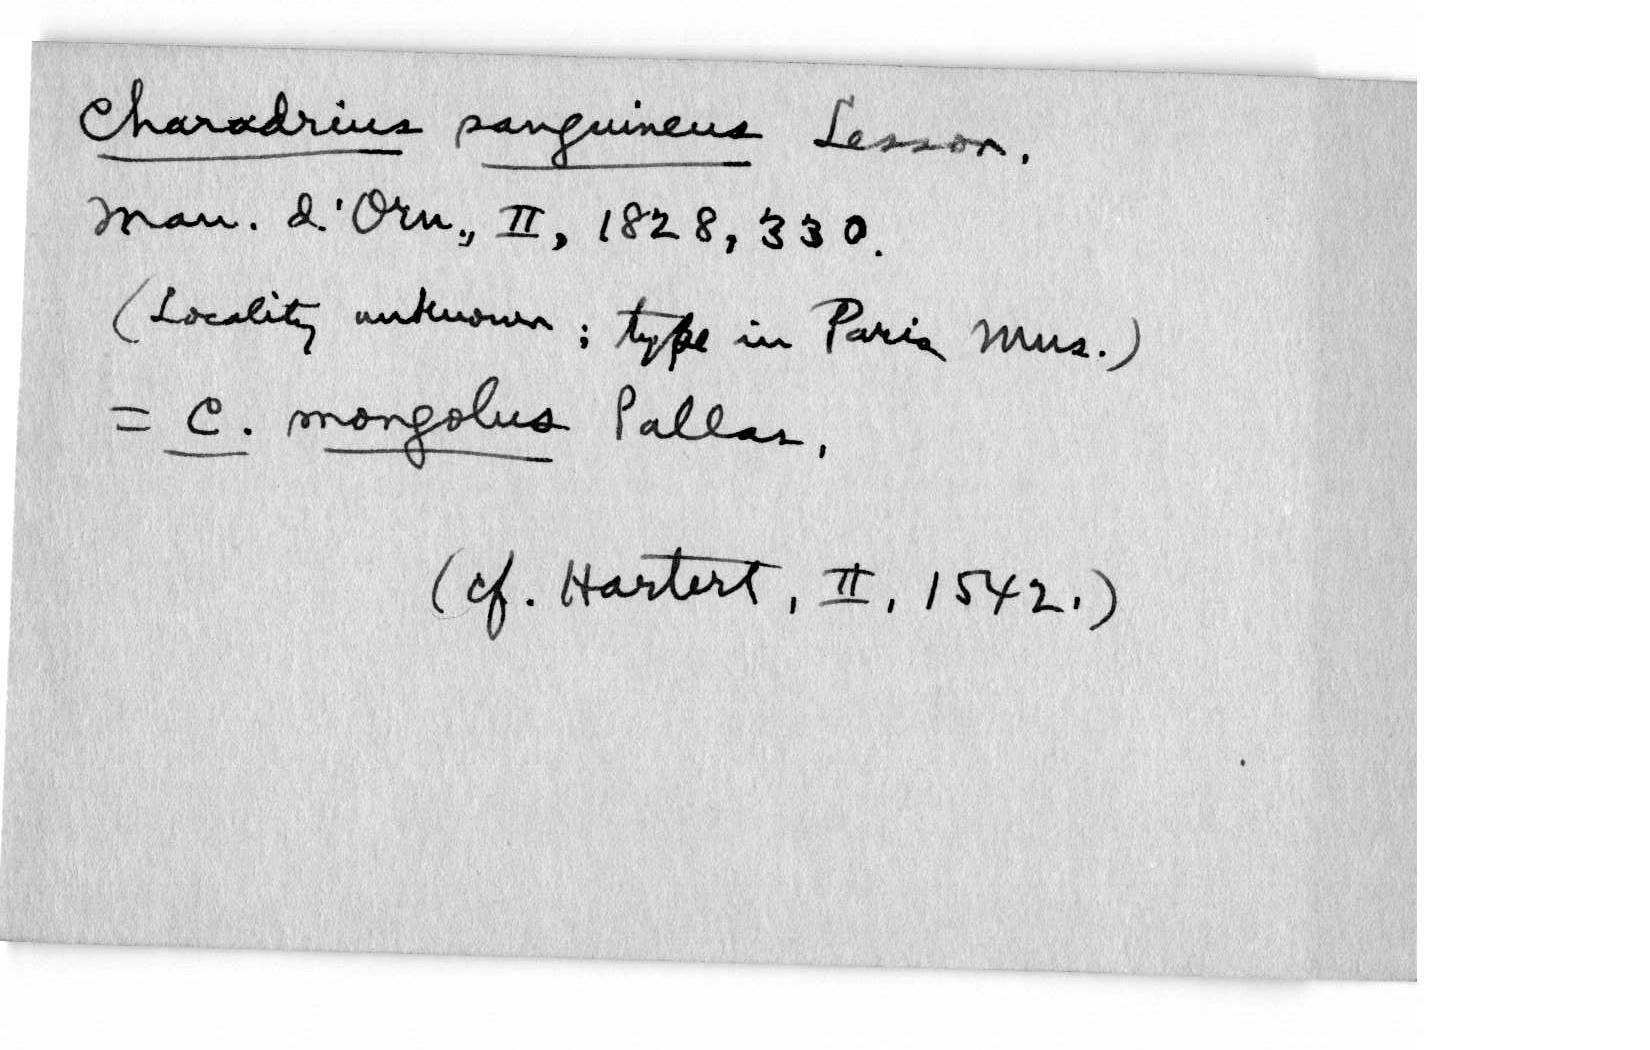 Charadrius sanguineus Lesson.
Man. d'Orn., II, 1828, 330.
(Locality unknown; type in Paris Mus.)
= C. mongolus Pallas,
(cf. Hartert, II, 1542.)